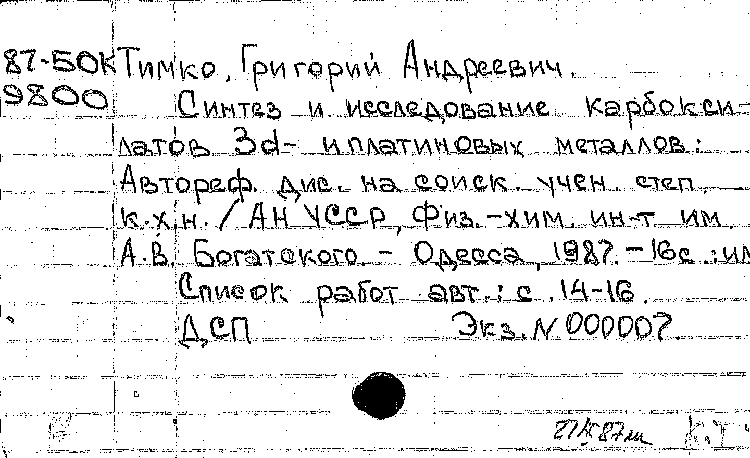 87-БОК Тимко, Григорий Андреевич.
9800 Синтез и исследование карбокси-
латов 3d- и платиновых металлов:
Автореф. дис. на соиск. учен. степ.
к.х.н. / АН УССР, Физ.-хим. ин-т им.
А.В. Богатского. - Одесса, 1987. - 16с.:ил
Список работ авт.: с. 14-16.
ДСП Экз. N 000007